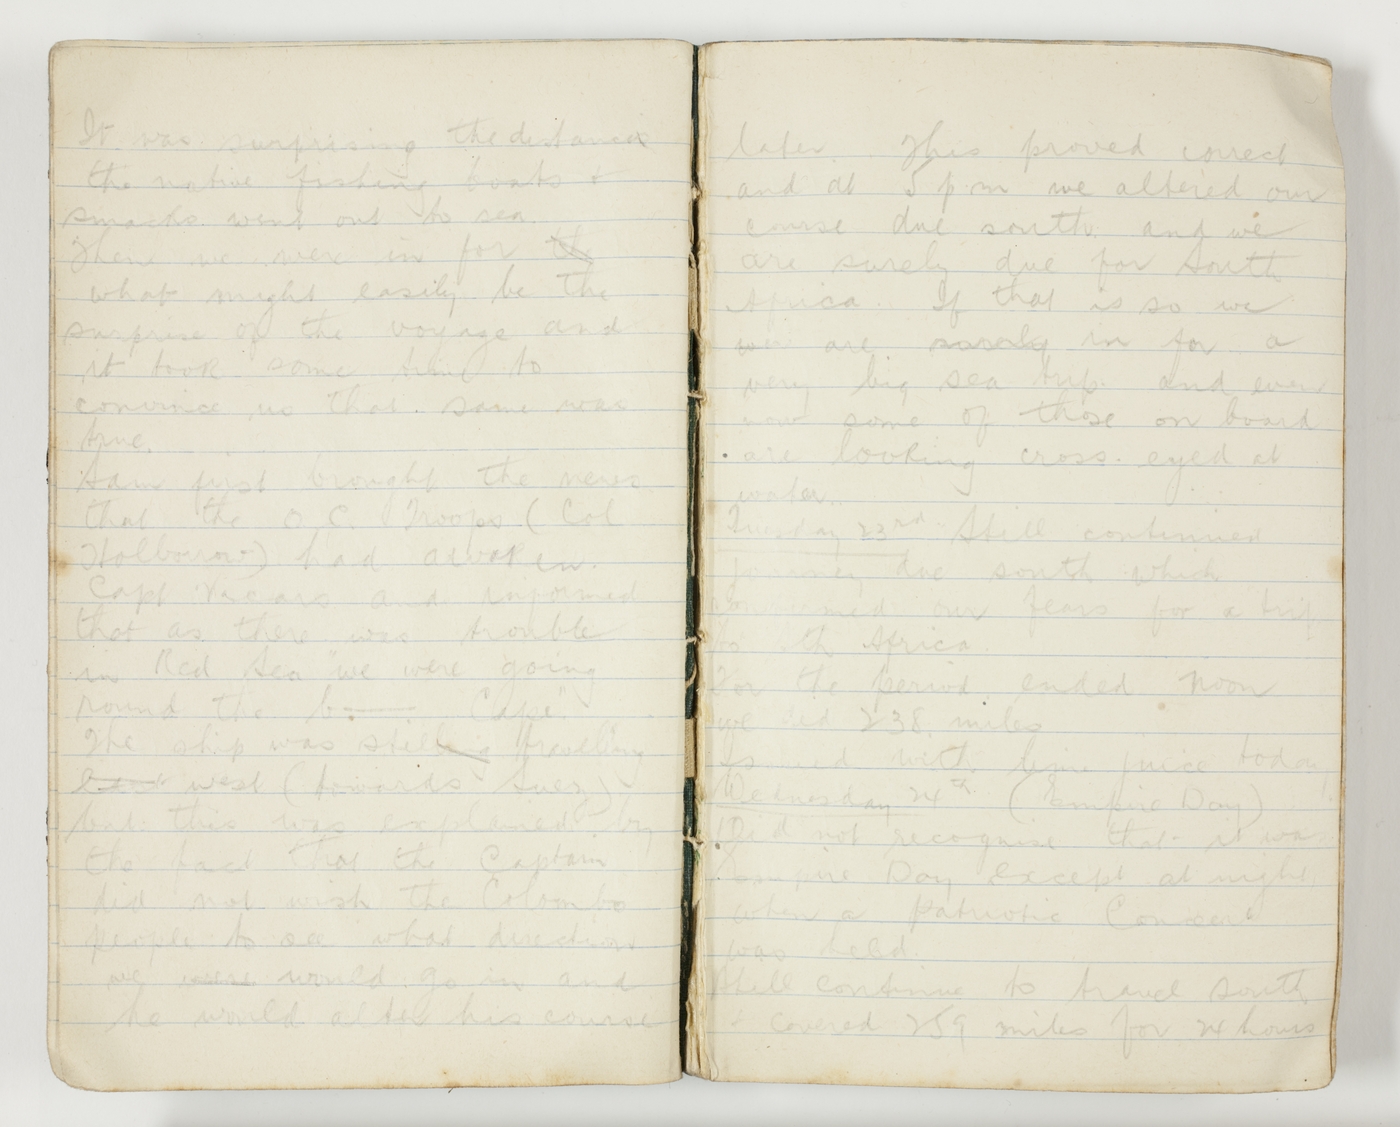 It was surprising the distances
the native fishing boats &
smacks went out to sea.
Then we were in for the
what might easily be the
surprise of the voyage and
it took some time to
convince us that same was
true.
Sam first brought the news
that the O.C. Troops (Col
Holborrow) had awoken
Capt Vicars and informed
that as there was trouble
in Red Sea "we were going
round the b—— Cape".
The ship was still travelling
east west (towards Suez)
but this was explained by
the fact that the Captain
did not wish the Colombo
people to see what direction
we were would go in and
he would alter his course
later. This proved correct
and at 5 p.m we altered our
course due south and we
are surely due for South
Africa. If that is so we
we are surely in for a
very big sea trip and even
now some of those on board
are looking cross-eyed at
water.
Tuesday 23rd Still continued
journey due south which
our fears for a trip
to Sth Africa.
For the period ended noon
we did 238 miles
Issued with lime juice today
Wednesday 24th (Empire Day)
Did not recognise that it was
Empire Day Except at night
when a Patriotic Concert
was held.
Still continue to travel south
& covered 259 miles for 24 hours